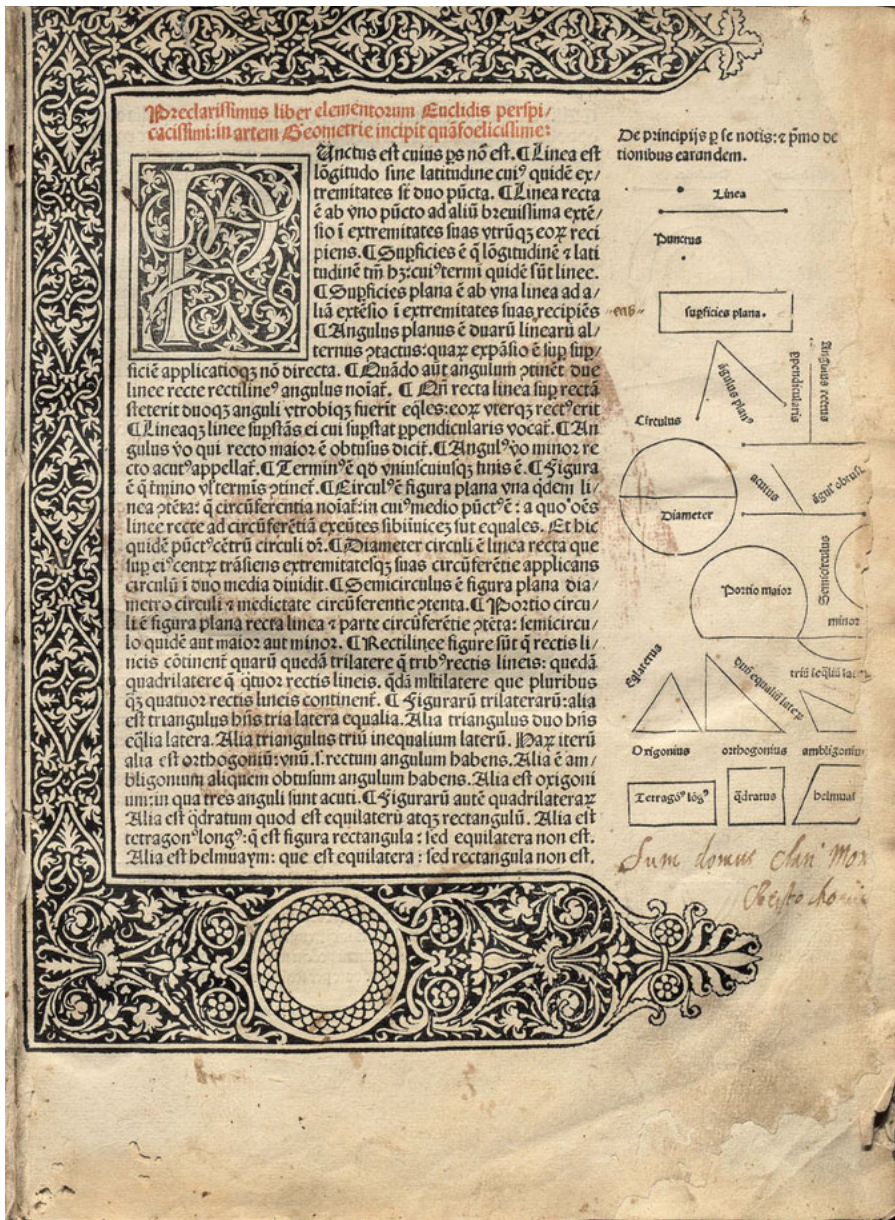 Preclarissimus liber elementorum Euclidis perspi/
cacissimi: in artem Geometrie incipit quãfoelicissime:
PUnctus est cuius ps nõ est. ¶ Linea est
lõgitudo sine latitudine cui⁹ quidẽ ex/
tremitates sũt duo pũcta. ¶ Linea recta
ẽ ab vno pũcto ad aliũ breuissima extẽ/
sio ĩ extremitates suas vtrũqꝫ eoꝝ reci
piens. ¶ Supficies ẽ q̃ lõgitudinẽ ⁊ lati
tudinẽ tm̃ hꝫ: cui⁹ termi quidẽ sũt linee.
¶ Supficies plana ẽ ab vna linea ad a/
liã extẽsio ĩ extremitates suas recipiẽs
¶ Angulus planus ẽ duarũ linearũ al/
ternus ꝯtactus: quaꝝ expãsio ẽ sup sup/
ficiẽ applicatioqꝫ nõ directa. ¶ Quãdo aũt angulum ꝯtinẽt due
linee recte rectiline⁹ angulus noĩat̃. ¶ Qñ recta linea sup rectã
steterit duoqꝫ anguli vtrobiqꝫ fuerit eq̃les: eoꝝ vterqꝫ rect⁹ erit
¶ Lineaqꝫ linee supstãs ei cui supstat ppendicularis vocat̃. ¶ An
gulus vo qui recto maior ẽ obtusus dicit̃. ¶ Angul⁹ vo minor re
cto acut⁹ appellat̃. ¶ Termin⁹ ẽ qd vniuscuiusqꝫ finis ẽ. ¶ Figura
ẽ q̃ tmino vl termis ꝯtinet̃. ¶ Circul⁹ ẽ figura plana vna qdem li/
nea ꝯtẽta: q̃ circũferentia noĩat̃: in cui⁹ medio pũct⁹ ẽ: a quo oẽs
linee recte ad circũferẽtiã exeũtes sibiĩuicẽ sut equales. Et hic
quidẽ pũct⁹ cẽtrũ circuli dr̃. ¶ Diameter circuli ẽ linea recta que
sup ei⁹ centꝝ trãsiens extremitatesqꝫ suas circũferẽtie applicans
circulũ ĩ duo media diuidit. ¶ Semicirculus ẽ figura plana dia/
metro circuli ⁊ medietate circũferentie ꝯtenta. ¶ Portio circu/
li ẽ figura plana recta linea ⁊ parte circũferẽtie ꝯtẽta: semicircu/
lo quidẽ aut maior aut minor. ¶ Rectilinee figure sũt q̃ rectis li/
neis cõtinent̃ quarũ quedã trilatere q̃ trib⁹ rectis lineis: quedã
quadrilatere q̃ q̃tuor rectis lineis. q̃dã mltilatere que pluribus
qꝫ quatuor rectis lineis continent̃. ¶ Figurarũ trilaterarũ: alia
est triangulus hñs tria latera equalia. Alia triangulus duo hñs
eq̃lia latera. Alia triangulus triũ inequalium laterũ. Haꝝ iterũ
alia est orthogoniũ: vnũ .s. rectum angulum habens. Alia ẽ am/
bligonium aliquem obtusum angulum habens. Alia est oxigoni
um: in qua tres anguli sunt acuti. ¶ Figurarũ autẽ quadrilateraꝝ
Alia est q̃dratum quod est equilaterũ atqꝫ rectangulũ. Alia est
tetragon⁹ long⁹: q̃ est figura rectangula: sed equilatera non est.
Alia est helmuaym: que est equilatera: sed rectangula non est.
De principijs p se notis: ⁊ p̃mo de
tionibus earandem.
Linea
Punctus
supficies plana.
ãgulus plan⁹
ppendicularis
Angulus rectus
Circulus
Diameter
acutus
ãgul⁹ obtus
Portio maior
Semicirculus
minor
Eqlaterus
duũ equaliũ laterꝝ
triũ ĩeq̃liũ late
Oxigonius
orthogonius
ambligoniu
Tetragõ⁹ lõg⁹
q̃dratus
helmua
Sum domus